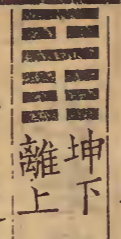 坤下
離上